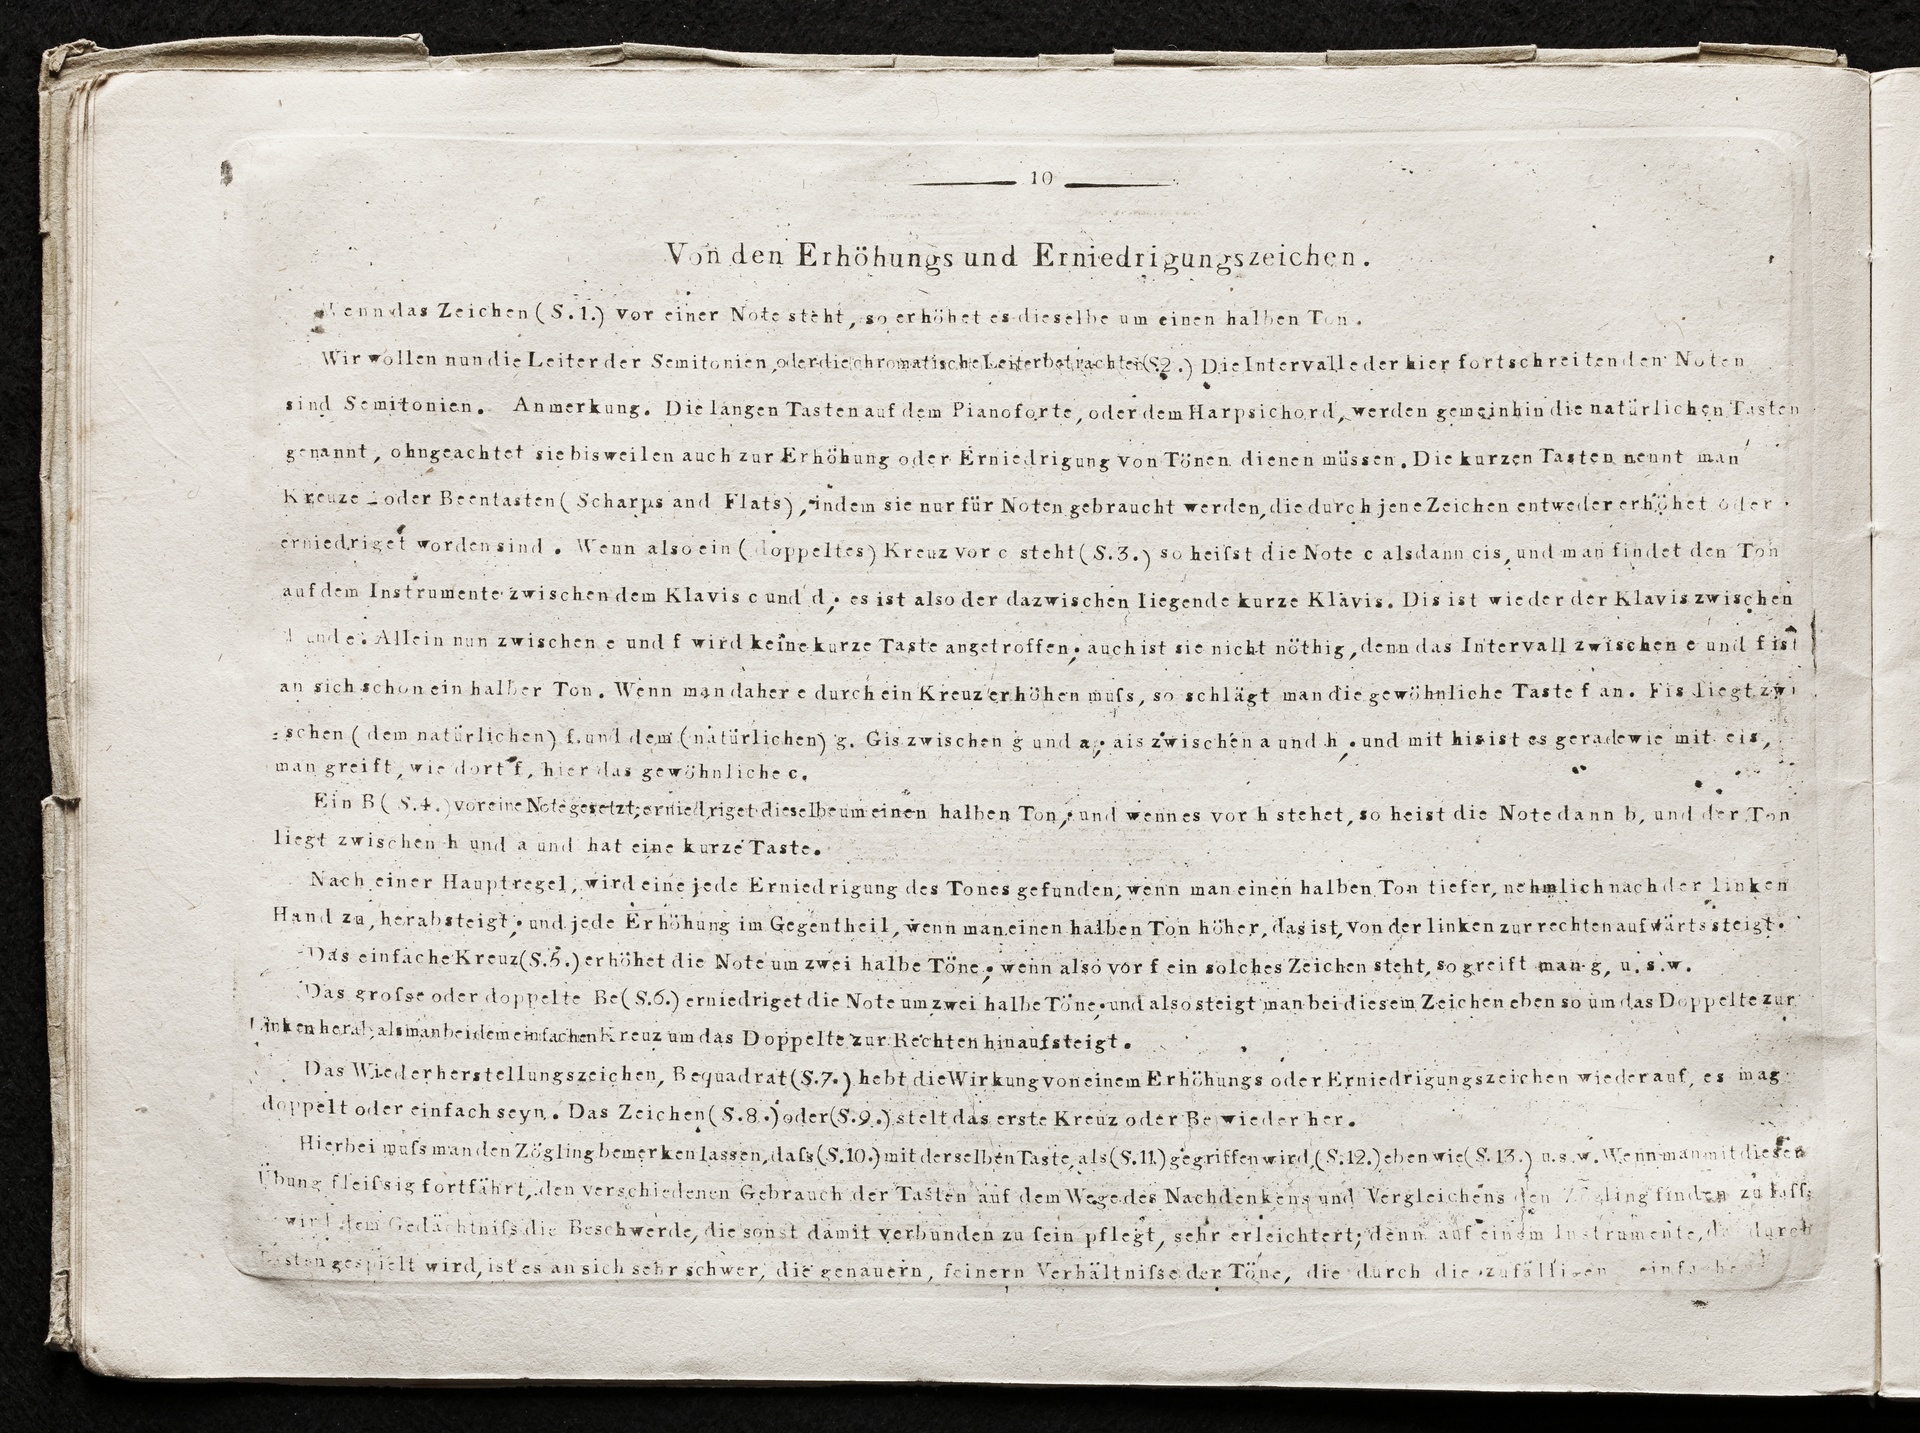 10
Von den Erhöhungs und Erniedrigungszeichen.
Wenn das Zeichen (S.1.) vor einer Note steht, so erhöhet es dieselbe um einen halben Ton.
Wir wollen nun die Leiter der Semitonien, oder die chromatische Leiter betrachten (S.2.) Die Intervalle der hier fortschreitenden Noten
sind Semitonien. Anmerkung. Die langen Tasten auf dem Pianoforte, oder dem Harpsichord, werden gemeinhin die natürlichen Tasten
genannt, ohngeachtet sie bisweilen auch zur Erhöhung oder Erniedrigung von Tönen dienen müssen. Die kurzen Tasten nennt man
Kreuze - oder Beentasten (Scharps and Flats), indem sie nur für Noten gebraucht werden, die durch jene Zeichen entweder erhöhet oder
erniedriget worden sind. Wenn also ein (doppeltes) Kreuz vor c steht (S.3.) so heifst die Note c alsdann cis, und man findet den Ton
auf dem Instrumente zwischen dem Klavis c und d; es ist also der dazwischen liegende kurze Klavis. Dis ist wieder der Klavis zwischen
d und e. Allein nun zwischen e und f wird keine kurze Taste angetroffen; auch ist sie nicht nöthig, denn das Intervall zwischen e und f ist
an sich schon ein halber Ton. Wenn man daher e durch ein Kreuz erhöhen mufs, so schlägt man die gewöhnliche Taste f an. Fis liegt zwi
=schen (dem natürlichen) f und dem (natürlichen) g. Gis zwischen g und a; ais zwischen a und h, und mit his ist es gerade wie mit eis,
man greift, wie dort f, hier das gewöhnliche c.
Ein B (S.4.) vor eine Note gesetzt, erniedriget dieselbe um einen halben Ton; und wenn es vor h stehet, so heist die Note dann b, und der Ton
liegt zwischen h und a und hat eine kurze Taste.
Nach einer Hauptregel, wird eine jede Erniedrigung des Tones gefunden, wenn man einen halben Ton tiefer, nehmlich nach der linken
Hand zu, herabsteigt; und jede Erhöhung im Gegentheil, wenn man einen halben Ton höher, das ist, von der linken zur rechten aufwärts steigt.
Das einfache Kreuz (S.5.) erhöhet die Note um zwei halbe Töne; wenn also vor f ein solches Zeichen steht, so greift man g, u.s.w.
Das grofse oder doppelte Be (S.6.) erniedriget die Note um zwei halbe Töne; und also steigt man bei diesem Zeichen eben so um das Doppelte zur
Linken herab, als man bei dem einfachen Kreuz um das Doppelte zur Rechten hinaufsteigt.
Das Wiederherstellungszeichen, Bequadrat (S.7.) hebt die Wirkung von einem Erhöhungs oder Erniedrigungszeichen wieder auf, es mag
doppelt oder einfach seyn. Das Zeichen (S.8.) oder (S.9.) stelt das erste Kreuz oder Be wieder her.
Hierbei mufs man den Zögling bemerken lassen, dafs (S.10.) mit derselben Taste, als (S.11.) gegriffen wird, (S.12.) eben wie (S.13.) u.s.w. Wenn man mit dieser
Übung fleifsig fortfährt, den verschiedenen Gebrauch der Tasten auf dem Wege des Nachdenkens und Vergleichens den Zögling finden zu
wird dem Gedächtnifs die Beschwerde, die sonst damit verbunden zu sein pflegt, sehr erleichtert; denn auf einem Instrumente, durch
Tasten gespielt wird, ist es an sich sehr schwer, die genauern, feinern Verhältnifse der Töne, die durch die zufälligen einfache